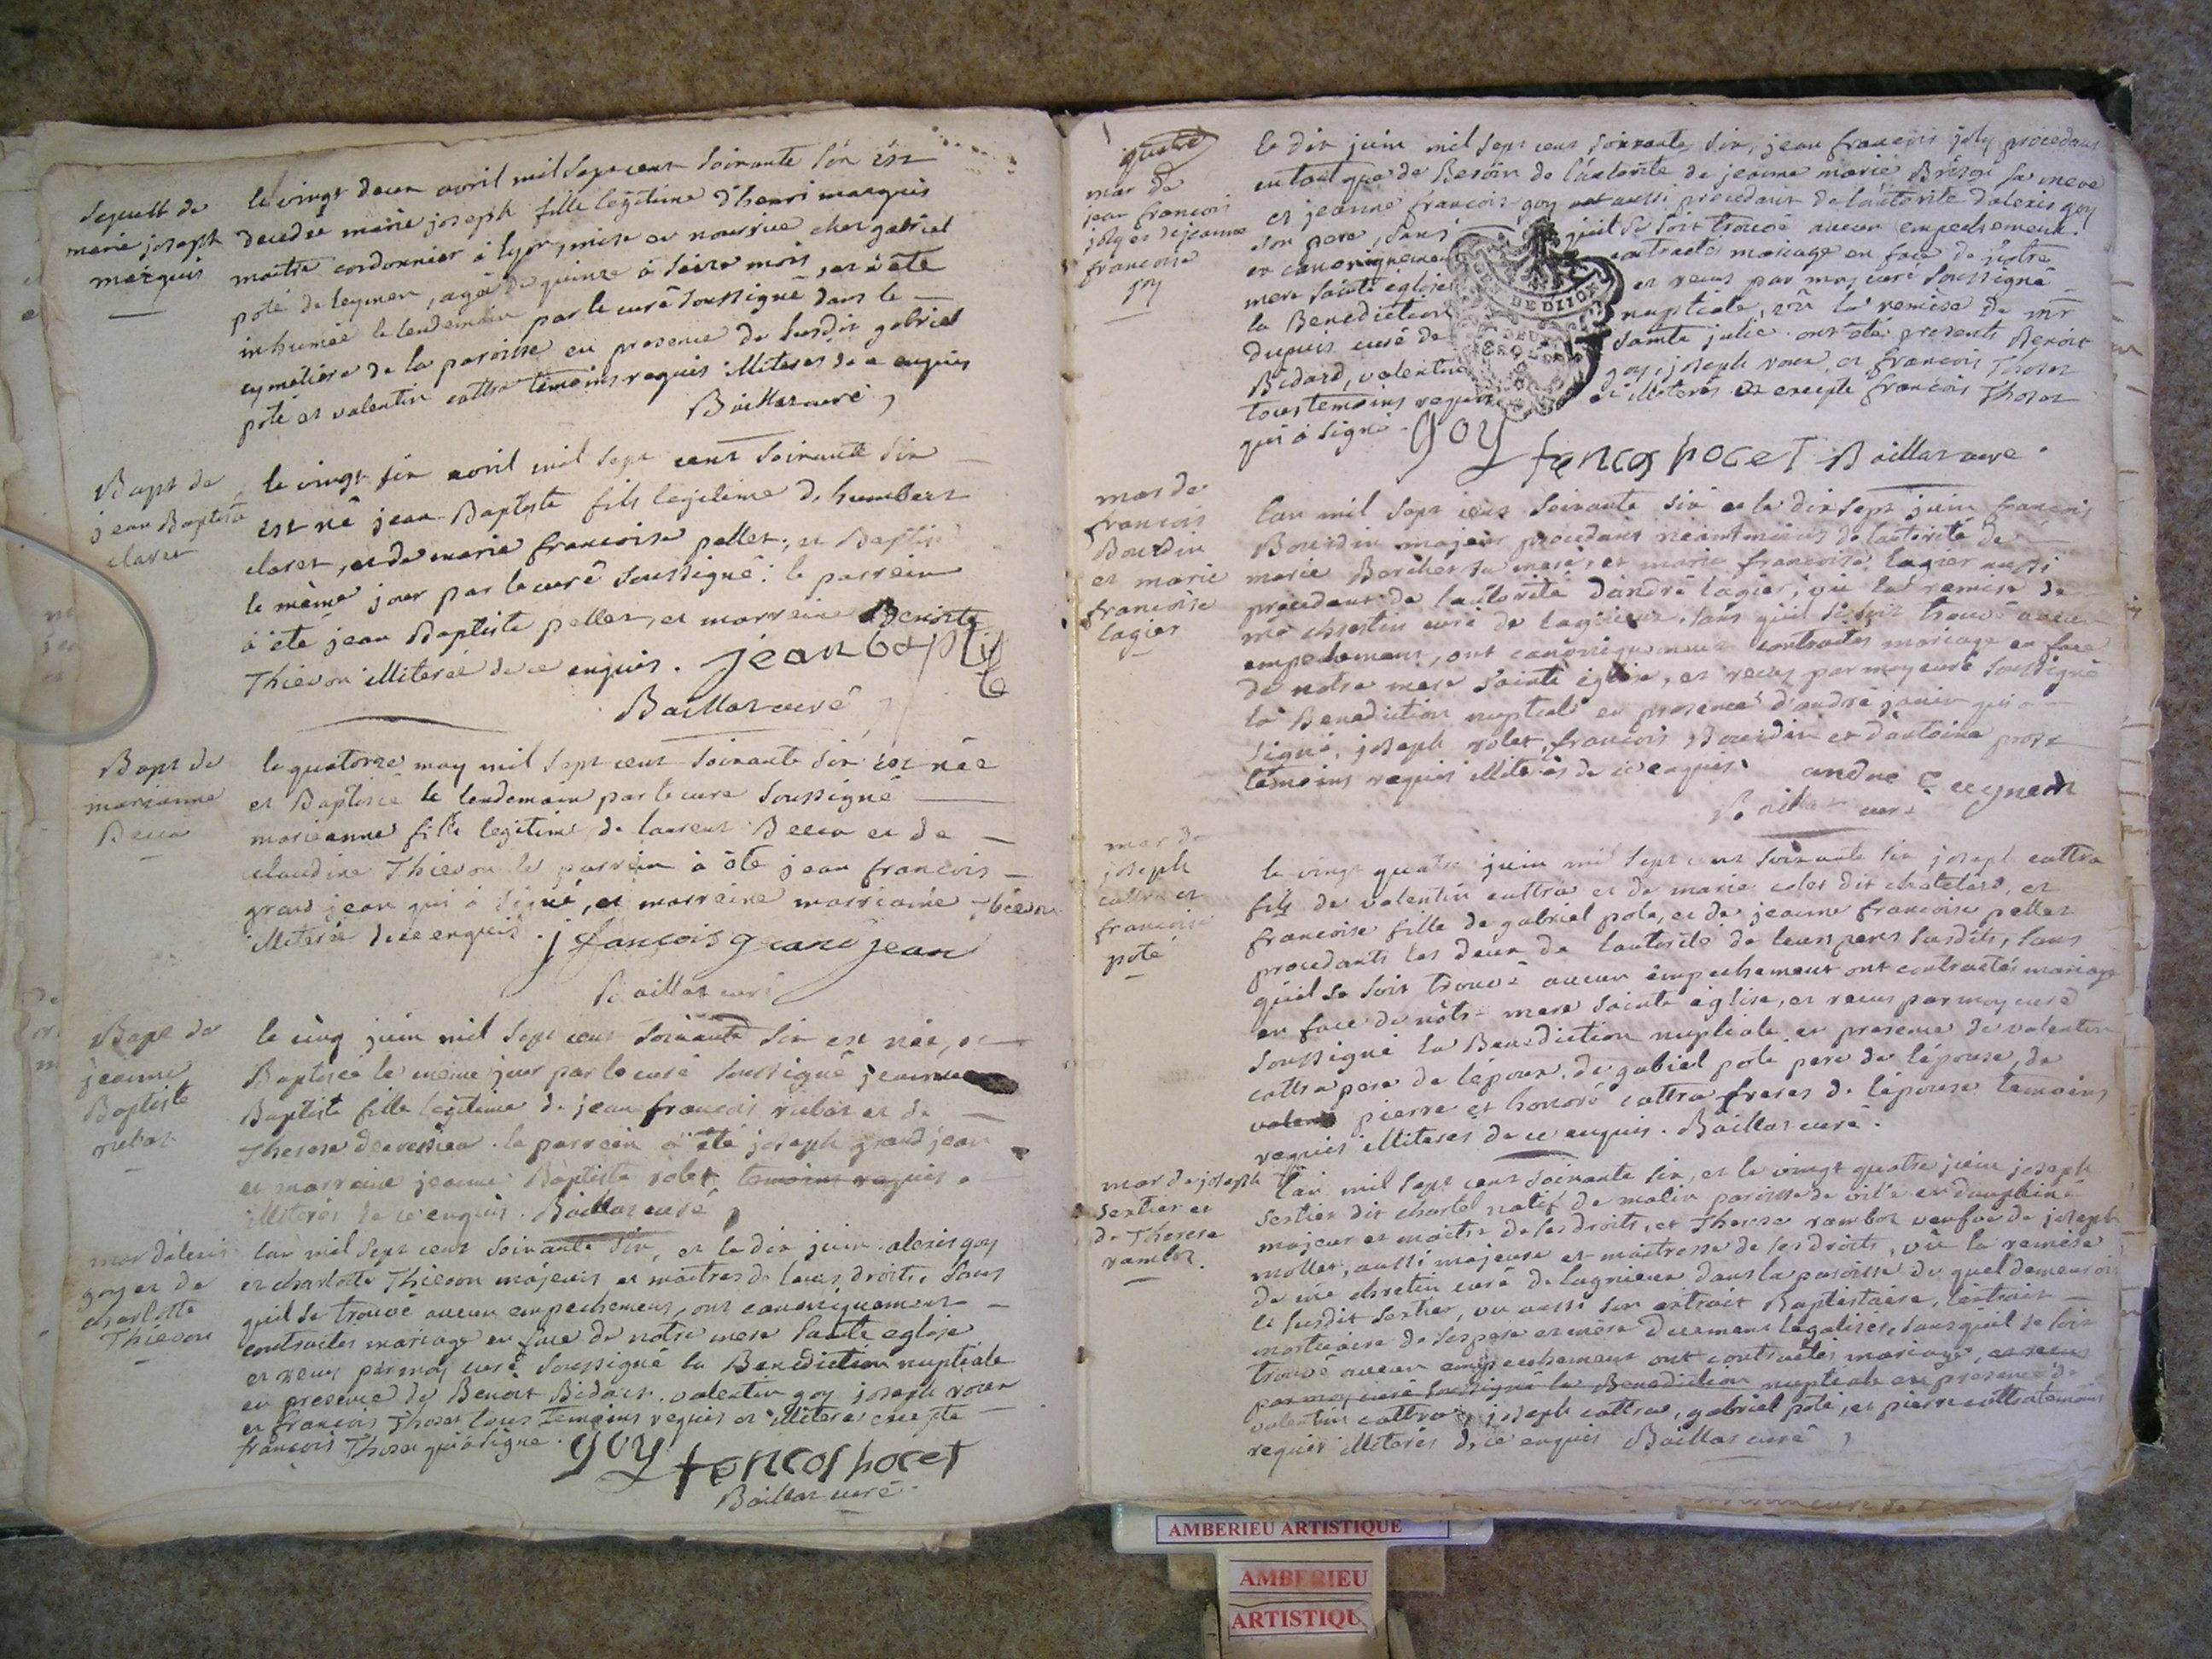 Sepult de
marie joseph
marquis
le vingt deux avril mil sept cent soixante six est
decedée marie joseph fille legitime d'henri marquis
maitre cordonnier à lyon, mise en nourrice chez gabriel
poté de leymen, agée de quinze à seize mois, et à été
inhumée le lendemain par le curé soussigné dans le
cymetiére de la paroisse en presence du susdit gabriel
poté et valentin cottra témoins requis illiteres de ce enquis
Baillat curé
Bapt de
jean Baptiste
claret
le vingt six avril mil sept cent soixante six
est né jean Baptiste fils legitime de humbert
claret, et de marie francoise pellet, et Baptisé
le même jour par le curé soussigné. le parrein
à été jean Baptiste pellet, et marreine Benoite
Thievon illiterée de ce enquis. jean baptiste
Baillat curé
Bapt de
marianne
le quatorze may mil sept cent soixante six est née
et Baptisée le lendemain par le curé soussigné
marieanne fille legitime de laurent et de
claudine Thievon le parrein à été jean francois
grand jean qui à signé, et marreine marrianne
illiterée de ce enquis. j francois grand jean
Baillat curé
Bapt de
jeanne
Baptiste
rubat
le cinq juin mil sept cent soixante six est née, et
Baptisée le même jour par le curé soussigné jeanne
Baptiste fille legitime de jean francois rubat et de
Therese le parrein à été joseph grand jean
et marreine jeanne Baptiste rolet temoins requis
illiterés de ce enquis. Baillat curé
mar d'alexis
goy et de
charlotte
Thievon
l'an mil sept cent soixante six, et le dix juin alexis goy
et charlotte Thievon majeurs et maitres de leurs droits, sans
quil se trouvé aucun empechement, ont canoniquement
contractés mariage en face de notre mere sainte eglise
et reçus par moy curé soussigné la Benediction nuptiale
en presence de Benoit Bidard, valentin goy joseph roux
et francois Thoset tous temoins requis et illiteres excepte
francois Thoset qui à signé.
goy francos hocet
Baillat curé
mar de
jean francois
joly et de jeanne
francoise
goy
le dix juin mil sept cent soixante six, jean francois joly procedant
en tant que de Besoin de l'autorité de jeanne marie Brison sa mere
et jeanne francois goy aussi procedant de l'autorité d'alexis goy
son pere, sans quil se soit trouvé aucun empechement
en canoniquement contractés mariage en face de notre
mere sainte église et recus par moy curé soussigné
la Benediction nuptiale, vû la remise de mr
dupuis curé de sainte julie. ont été presents Benoit
Bidard, valentin goy, joseph roux, et francois Thoset
tous temoins requis et illiterés excepte francois Thoset
qui à signé.
EN DE DIJON
goy francos hocet Baillat curé
mar de
francois
Bourdin
et marie
francoise
lagier
l'an mil sept cent soixante six et le dix sept juin francois
Bourdin majeur procedant neantmoins de l'autorité de
marie Borchet sa mere, et marie francoise lagier aussi
procedant de l'autorité d'andré lagier, vû la remise de
mre chretin curé de lagnieux, sans quil se soit trouvé aucun
empechement, ont canoniquement contractés mariage en face
de notre mere sainte église, et recus par moy curé soussigné
la Benediction nuptiale en presence d'andré qui a
signé, joseph rolet, francois Bourdin et d'antoine
témoins requis illiterés de ce enquis. andré
Baillat curé
mar de
joseph
cattra et
francoise
poté
le vingt quatre juin mil sept cent soixante six joseph cottra
fils de valentin cuttra et de marie colet dit chatelard, et
francoise fille de gabriel pote, et de jeanne francoise pellet
procedants les deux de l'autorité de leurs peres susdits, sans
quil se soit trouvé aucun empechement ont contractés mariage
en face de notre mere sainte église, et recus par moy curé
soussigné la Benediction nuptiale en presence de valentin
cottra pere de l'époux. de gabriel poté pere de l'épouse, de
pierre et honoré cattra freres de l'épouse temoins
requis illiteres de ce enquis. Baillat curé.
mar de joseph
sertier et
de Therese
ramboz.
l'an mil sept cent soixante six, et le vingt quatre juin joseph
sertier dit charlet natif de malin paroisse de en dauphiné
majeur et maitre de ses droits, et Therese rambot veufve de joseph
mollet, aussi majeure et maitresse de ses droits, vû la remise
de mre chretin curé de lagnieux dans la paroisse du quel demeuroit
le susdit sertier, vu aussi son extrait Baptistaire, l'extrait
mortuaire de ses pere et mère duement légalisés, sans quil se soit
trouvé aucun empechement ont contractés mariage, et recus
par moy curé soussigné la Benediction nuptiale en presence de
valentin cattra, joseph cattra, gabriel poté, et pierre cattra temoins
requis illiterés de ce enquis Baillat curé
AMBERIEU ARTISTIQUE
AMBERIEU
ARTISTIQU